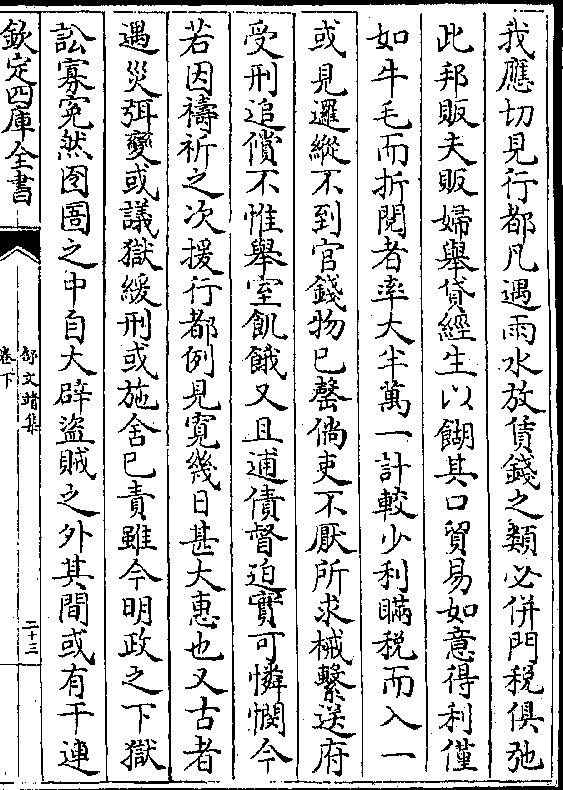 我應切見行都凡遇雨水放賃錢之類必併門税俱弛
此邦販夫販婦舉貸經生以餬其口貿易如意得利僅
如牛毛而折閲者率大半萬一計較少利瞞税而入一
或見邏縱不到官錢物已罄倘吏不厭所求械繫送府
受刑追償不惟舉室飢餓又且逋債督迫實可憐憫今
若因禱祈之次援行都例見寛幾日甚大惠也又古者
遇災弭變或議獄緩刑或施舍已責雖今明政之下獄
訟寡寃然囹圄之中自大辟盜賊之外其間或有干連
欽定四庫全書
舒文靖集
卷下
二十三